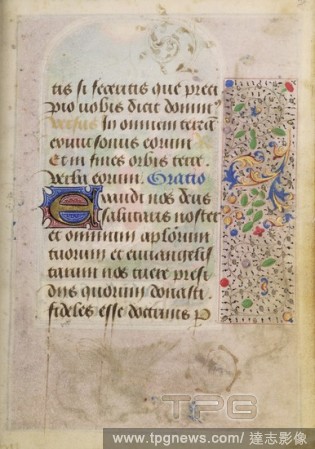 tis si feceritis que preci
pio vobis dicit domin⁹
Versus In omnem terrā
exivit sonus eorum R
Et in fines orbis terre
verba eorum. Oratio
Exaudi nos deus
salutaris noster
et omnium aplōrum
tuorum et euuangelis
tarum nos tuere presi
diis quorum donasti
fideles esse doctrinis p
TPG
www.tpgnews.com/ 達志影像